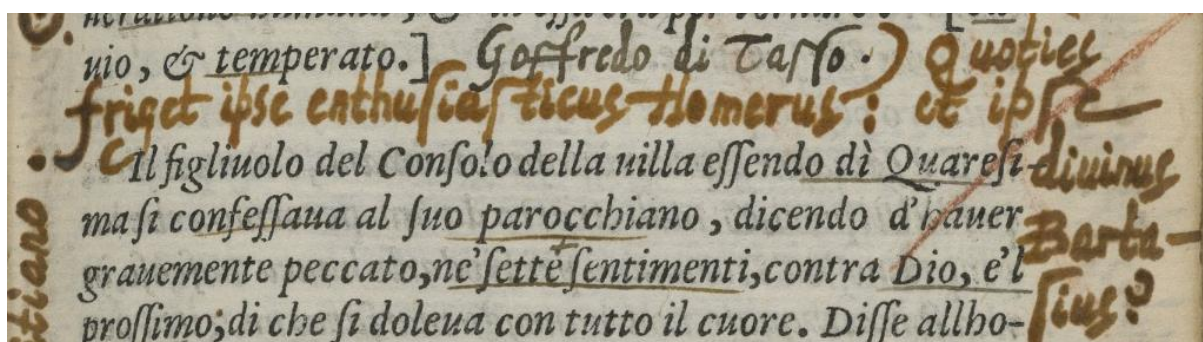 uio, & temperato.] Goffredo di Tasso.) Quoties
friget ipse enthuſiaſticus Homerus: et ipſe
diuinus
Barta-
ſius?
Il figliuolo del Conſolo della uilla eſſendo dì Quareſi-
ma ſi confeſſaua al ſuo parocchiano, dicendo d'hauer
grauemente peccato, ne' ſette ſentimenti, contra Dio, e'l
proſſimo; di che ſi doleua con tutto il cuore. Diſſe allho-